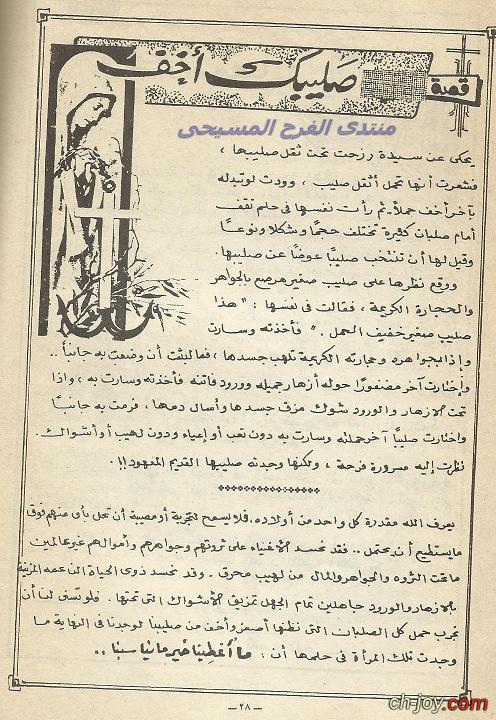 قصة
صليبك أخف
منتدى الفرح المسيحى
يحكى عن سيدة رزحت تحت ثقل صليبها ،
فشعرت أنها تحمل أثقل صليب ، وودت لو تبدله
بآخر أخف حملاً ثم رأت نفسها فى حلم تقف
أمام صلبان كثيرة تختلف حجمًا وشكلًا ونوعًا
وقيل لها أن تنتخب صليبًا عوضًا عن صليبها.
ووقع نظرها على صليب صغير مرصع بالجواهر
والحجارة الكريمة ، فقالت فى نفسها : " هذا
صليب صغير خفيف الحمل . " فأخذته وسارت
وإذا بجواهره وحجارته الكريمة تلهب جسدها ، فما لبثت أن وضعته جانباً ..
وإختارت آخر مضفورًا حوله أزهار جميله وورود فاتنه فأخذته وسارت به ، واذا
تحت الازهار والورود شوك مزق جسدها وأسال دمها ، فرمت به جانبًا
واختارت صليبًا آخر حملته وسارت به دون تعب أو إعياء ودون لهيب أو أشواك .
نظرت إليه مسرورة فرحة ، ولكنها وجدته صليبها القديم المعهود !! .
يعرف الله مقدرة كل واحد من أولاده ، فلا يسمح لتجربة أو مصيبة أن تحل بأى منهم فوق
ما يستطيع أن يحتمل .. فقد نحسد الأغنياء على ثروتهم وجواهرهم وأموالهم غير عالمين
ما تحت الثروه والجواهر والمال من لهيب محرق . وقد نحسد ذوى الحياة الناعمه المزينة
بالازهار والورود جاهلين تمام الجهل تمزيق الأشواك التى تحتها . فلو تسنى لنا أن
نجرب حمل كل الصلبان التى نظنها أصغر وأخف من صليبنا لوجدنا فى النهاية ما
وجدت تلك المرأة فى حلمها أن : ما أُعْطِينا خير ما يناسبنا ..
— ٢٨ —
ch-joy.com